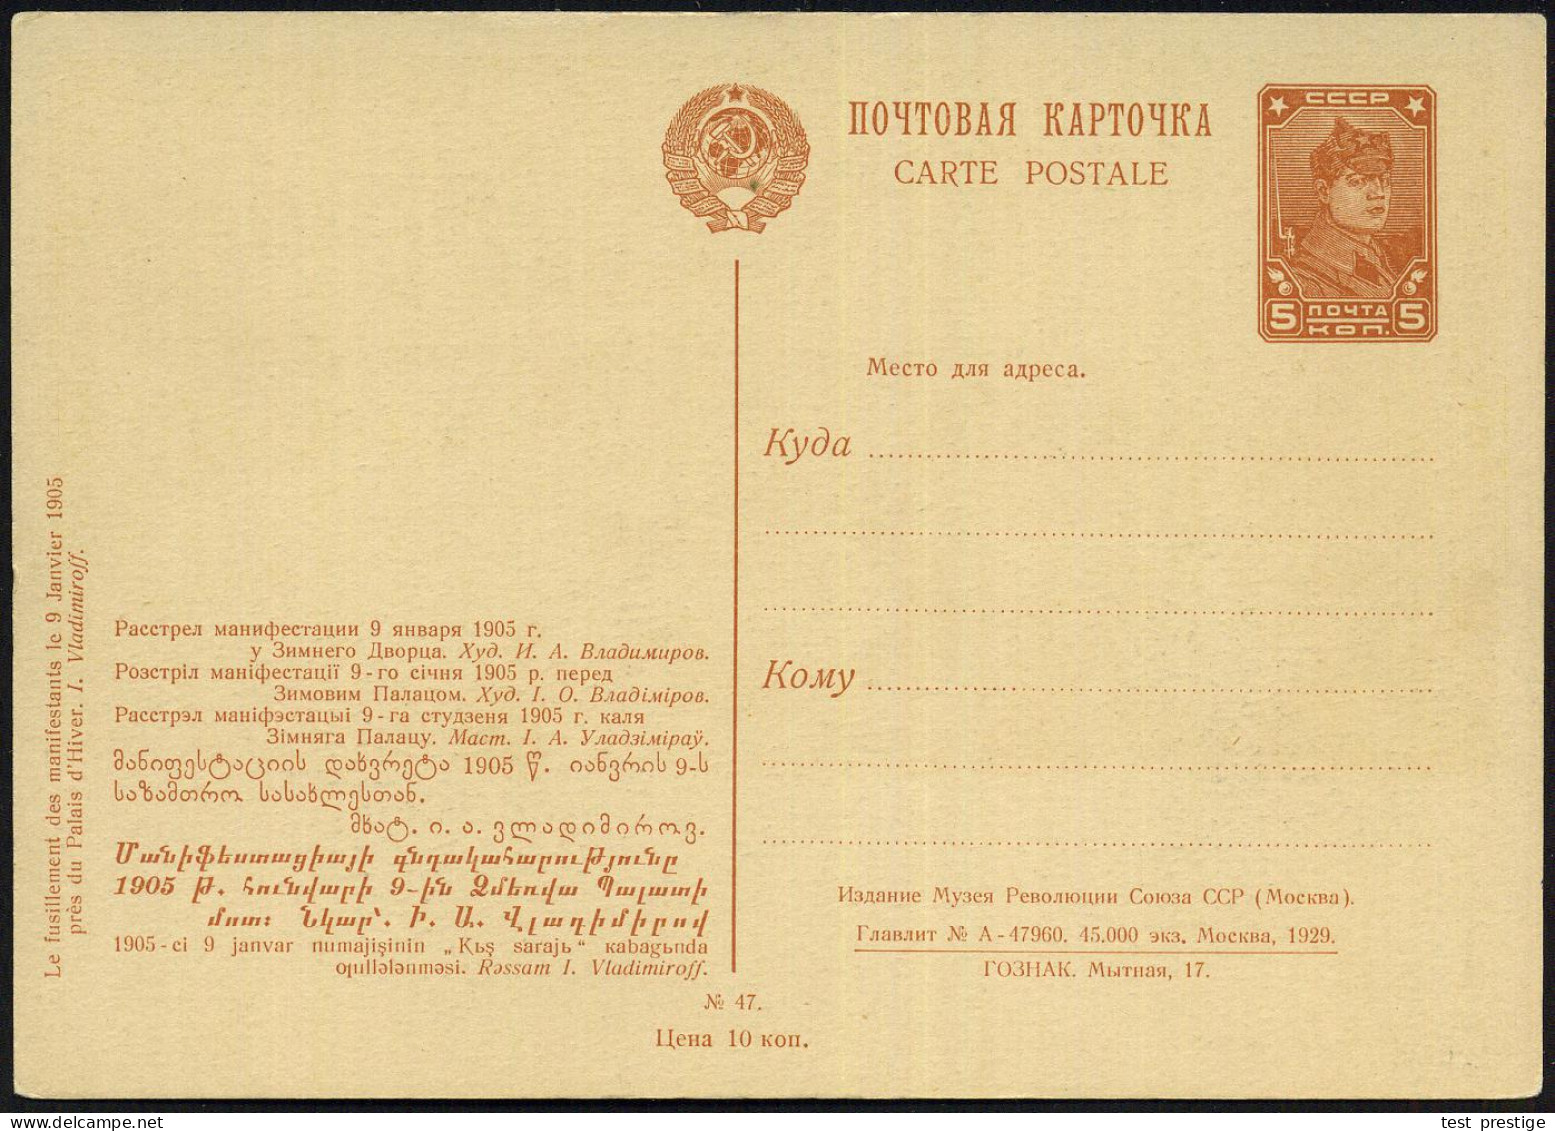 ПОЧТОВАЯ КАРТОЧКА
CARTE POSTALE
СССР
5 ПОЧТА 5
КОП.
Место для адреса.
Куда
Кому
Le fusillement des manifestants le 9 Janvier 1905
près du Palais d'Hiver. I. Vladimiroff.
Расстрел манифестации 9 января 1905 г.
у Зимнего Дворца. Худ. И. А. Владимиров.
Розстріл маніфестації 9-го січня 1905 р. перед
Зимовим Палацом. Худ. І. О. Владіміров.
Расстрэл маніфэстацыі 9-га студзеня 1905 г. каля
Зімняга Палацу. Маст. І. А. Уладзіміраў.
მანიფესტაციის დახვრეტა 1905 წ. იანვრის 9-ს
საზამთრო სასახლესთან.
მხატ. ი. ა. ვლადიმიროვ.
Մանիֆեստացիայի գնդակահարությունը
1905 թ. հունվարի 9-ին Ձմեռվա Պալատի
մոտ։ Նկար՝. Ի. Ա. Վլադիմիրով
1905-ci 9 janvar numajişinin „Kьş sarajь“ kabagьnda
oꞑullələnməsi. Rəssam I. Vladimiroff.
Издание Музея Революции Союза ССР (Москва).
Главлит № А-47960. 45.000 экз. Москва, 1929.
ГОЗНАК. Мытная, 17.
№ 47.
Цена 10 коп.
test_prestige